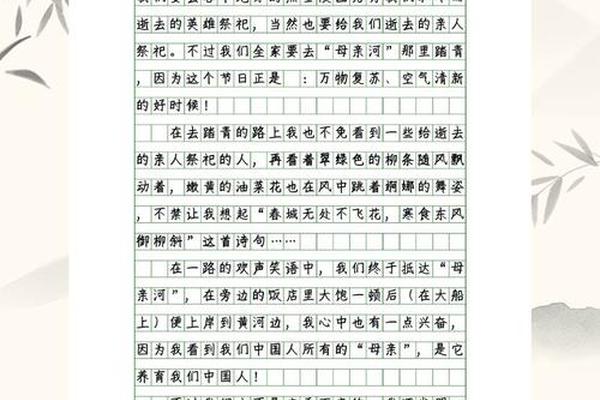 逝去的英雄祭祀，当然也要给我们逝去的亲人
祭祀。不过我们全家要去“母亲河”那里踏青
，因为这个节日正是　：万物复苏、空气清新
的好时候！
在去踏青的路上我也不免看到一些给逝去
的亲人祭祀的人，再看着翠绿色的柳条随风飘
动着，嫩黄的油菜花也在风中跳着婀娜的舞姿
，不禁让我想起“春城无处不飞花，寒食东风
御柳斜”这首诗句……
在一路的欢声笑语中，我们终于抵达“母
亲河”，在旁边的饭店里大饱一顿后（在大船
上）便上岸到黄河边，我心中也有一点兴奋，
因为我看到我们中国人所有的“母亲”，是它
养育我们中国人！